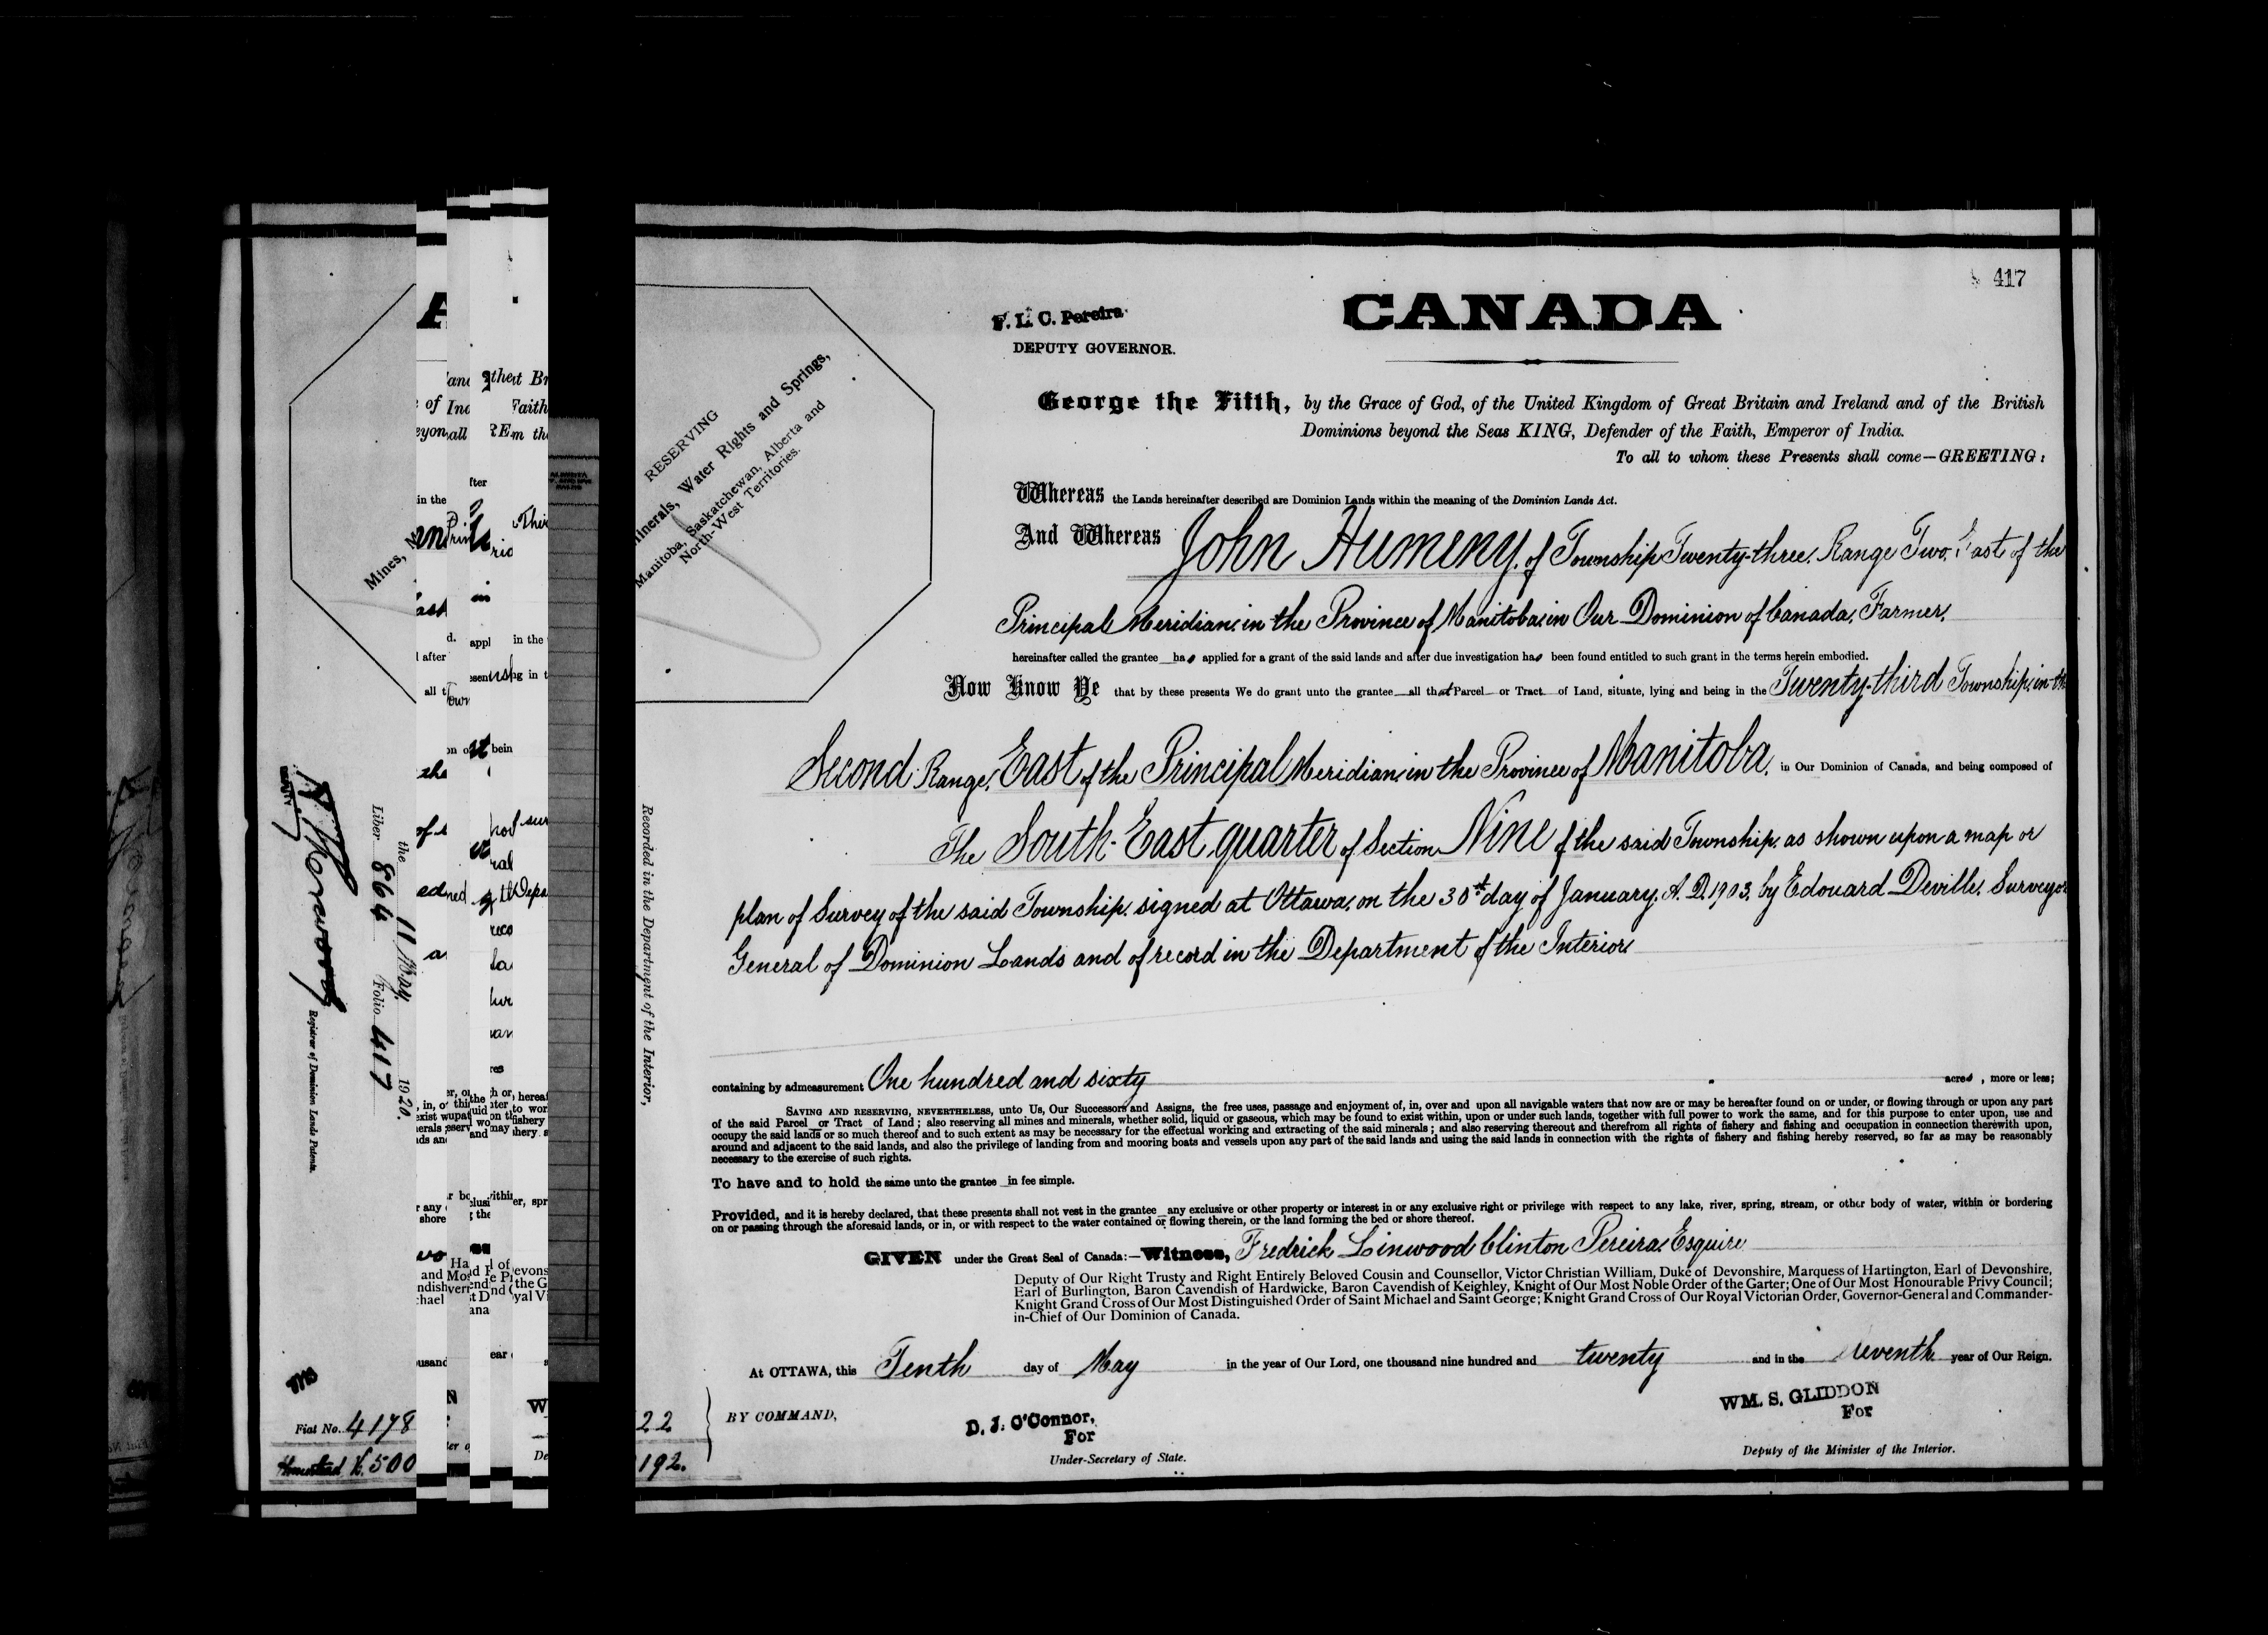 417
CANADA
F. L. C. Pereira
DEPUTY GOVERNOR.
RESERVING
Minerals, Water Rights and Springs,
Manitoba, Saskatchewan, Alberta and
North-West Territories.
George the Fifth, by the Grace of God, of the United Kingdom of Great Britain and Ireland and of the British
Dominions beyond the Seas KING, Defender of the Faith, Emperor of India.
To all to whom these Presents shall come—GREETING:
Whereas the Lands hereinafter described are Dominion Lands within the meaning of the Dominion Lands Act.
And Whereas John Humeny, of Township Twenty-three, Range Two, East of the
Principal Meridian, in the Province of Manitoba, in Our Dominion of Canada, Farmer,
hereinafter called the grantee has applied for a grant of the said lands and after due investigation has been found entitled to such grant in the terms herein embodied.
Now Know Ye that by these presents We do grant unto the grantee all that Parcel or Tract of Land, situate, lying and being in the Twenty-third Township, in the
Second Range, East of the Principal Meridian, in the Province of Manitoba, in Our Dominion of Canada, and being composed of
The South-East quarter of Section Nine of the said Township, as shown upon a map or
plan of Survey of the said Township, signed at Ottawa, on the 30th day of January, A. D. 1903, by Edouard Deville, Surveyor
General of Dominion Lands and of record in the Department of the Interior.
containing by admeasurement One hundred and sixty acres, more or less;
SAVING AND RESERVING, NEVERTHELESS, unto Us, Our Successors and Assigns, the free uses, passage and enjoyment of, in, over and upon all navigable waters that now are or may be hereafter found on or under, or flowing through or upon any part
of the said Parcel or Tract of Land; also reserving all mines and minerals, whether solid, liquid or gaseous, which may be found to exist within, upon or under such lands, together with full power to work the same, and for this purpose to enter upon, use and
occupy the said lands or so much thereof and to such extent as may be necessary for the effectual working and extracting of the said minerals; and also reserving thereout and therefrom all rights of fishery and fishing and occupation in connection therewith upon,
around and adjacent to the said lands, and also the privilege of landing from and mooring boats and vessels upon any part of the said lands and using the said lands in connection with the rights of fishery and fishing hereby reserved, so far as may be reasonably
necessary to the exercise of such rights.
To have and to hold the same unto the grantee in fee simple.
Provided, and it is hereby declared, that these presents shall not vest in the grantee any exclusive or other property or interest in or any exclusive right or privilege with respect to any lake, river, spring, stream, or other body of water, within or bordering
on or passing through the aforesaid lands, or in, or with respect to the water contained or flowing therein, or the land forming the bed or shore thereof.
GIVEN under the Great Seal of Canada:—Witness, Fredrick Linwood Clinton Pereira, Esquire
Deputy of Our Right Trusty and Right Entirely Beloved Cousin and Counsellor, Victor Christian William, Duke of Devonshire, Marquess of Hartington, Earl of Devonshire,
Earl of Burlington, Baron Cavendish of Hardwicke, Baron Cavendish of Keighley, Knight of Our Most Noble Order of the Garter; One of Our Most Honourable Privy Council;
Knight Grand Cross of Our Most Distinguished Order of Saint Michael and Saint George; Knight Grand Cross of Our Royal Victorian Order, Governor-General and Commander-
in-Chief of Our Dominion of Canada.
At OTTAWA, this Tenth day of May in the year of Our Lord, one thousand nine hundred and twenty and in the seventh year of Our Reign.
BY COMMAND,
D. J. O'Connor,
For
Under-Secretary of State.
WM. S. GLIDDON
For
Deputy of the Minister of the Interior.
22
192.
Recorded in the Department of the Interior,
Mines,
the 11 May, 1920.
Liber 864 Folio 417
DEPUTY
Registrar of Dominion Lands Patents.
Fiat No. 4178
Homestead 500